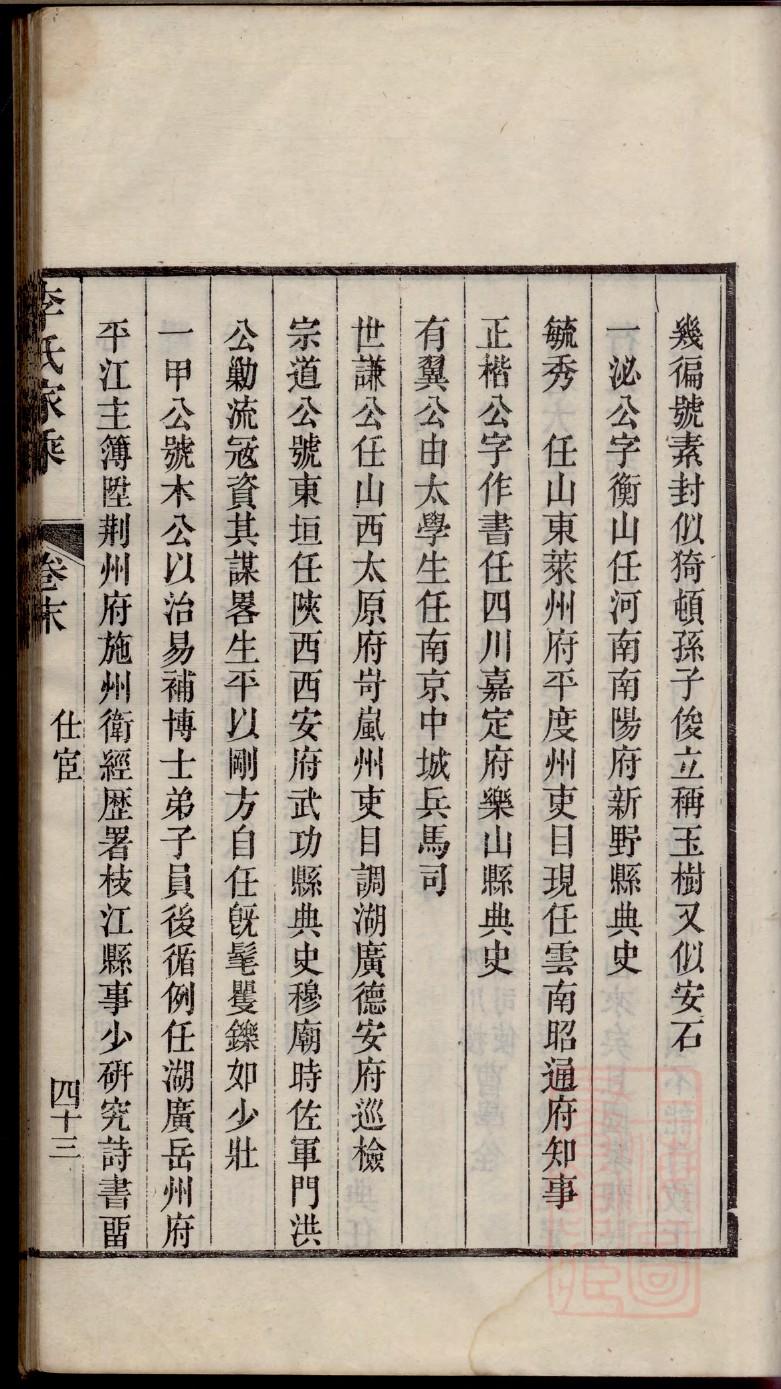 幾徧號素封似猗頓孫子俊立稱玉樹又似安石
一泌公字衡山任河南南陽府新野縣典史
毓秀　任山東萊州府平度州吏目現任雲南昭通府知事
正楷公字作書任四川嘉定府樂山縣典史
有翼公由太學生任南京中城兵馬司
世謙公任山西太原府岢嵐州吏目調湖廣德安府巡檢
宗道公號東垣任陝西西安府武功縣典史穆廟時佐軍門洪
公勦流冦資其謀畧生平以剛方自任旣髦矍鑠如少壯
一甲公號木公以治易補博士弟子員後循例任湖廣岳州府
平江主簿陞荆州府施州衛經歴署枝江縣事少硏究詩書畱
李氏家乘　卷末　仕宦　四十三